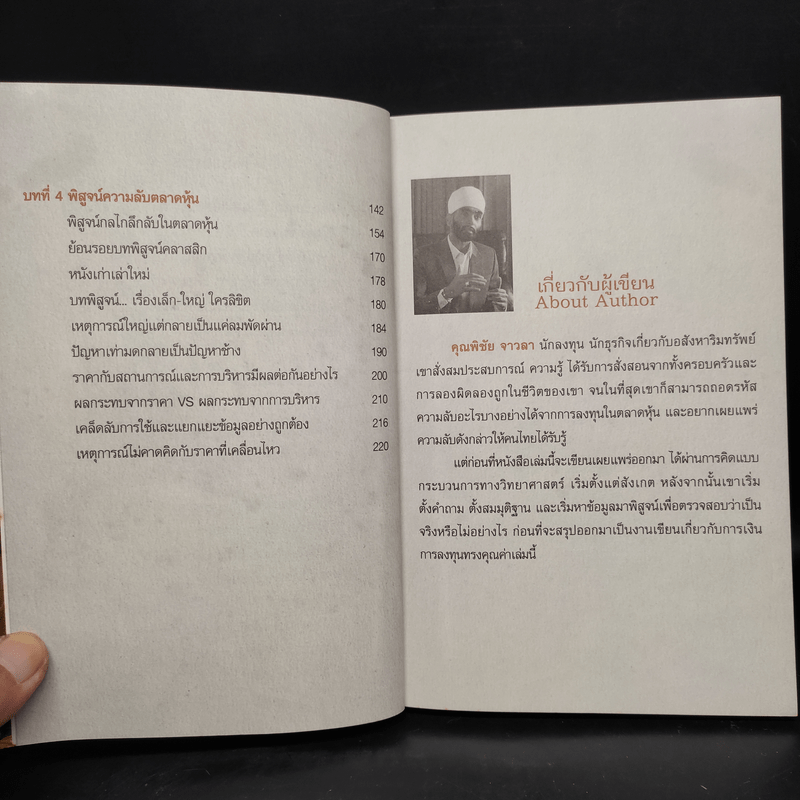 บทที่ 4 พิสูจน์ความลับตลาดหุ้น 142
พิสูจน์กลไกลึกลับในตลาดหุ้น 154
ย้อนรอยบทพิสูจน์คลาสสิก 170
หนังเก่าเล่าใหม่ 178
บทพิสูจน์... เรื่องเล็ก-ใหญ่ ใครลิขิต 180
เหตุการณ์ใหญ่แต่กลายเป็นแค่ลมพัดผ่าน 184
ปัญหาเท่ามดกลายเป็นปัญหาช้าง 190
ราคากับสถานการณ์และการบริหารมีผลต่อกันอย่างไร 200
ผลกระทบจากราคา VS ผลกระทบจากการบริหาร 210
เคล็ดลับการใช้และแยกแยะข้อมูลอย่างถูกต้อง 216
เหตุการณ์ไม่คาดคิดกับราคาที่เคลื่อนไหว 220
เกี่ยวกับผู้เขียน
About Author
คุณพิชัย จาวลา นักลงทุน นักธุรกิจเกี่ยวกับอสังหาริมทรัพย์
เขาสั่งสมประสบการณ์ ความรู้ ได้รับการสั่งสอนจากทั้งครอบครัวและ
การลองผิดลองถูกในชีวิตของเขา จนในที่สุดเขาก็สามารถถอดรหัส
ความลับอะไรบางอย่างได้จากการลงทุนในตลาดหุ้น และอยากเผยแพร่
ความลับดังกล่าวให้คนไทยได้รับรู้
แต่ก่อนที่หนังสือเล่มนี้จะเขียนเผยแพร่ออกมา ได้ผ่านการคิดแบบ
กระบวนการทางวิทยาศาสตร์ เริ่มตั้งแต่สังเกต หลังจากนั้นเขาเริ่ม
ตั้งคำถาม ตั้งสมมุติฐาน และเริ่มหาข้อมูลมาพิสูจน์เพื่อตรวจสอบว่าเป็น
จริงหรือไม่อย่างไร ก่อนที่จะสรุปออกมาเป็นงานเขียนเกี่ยวกับการเงิน
การลงทุนทรงคุณค่าเล่มนี้